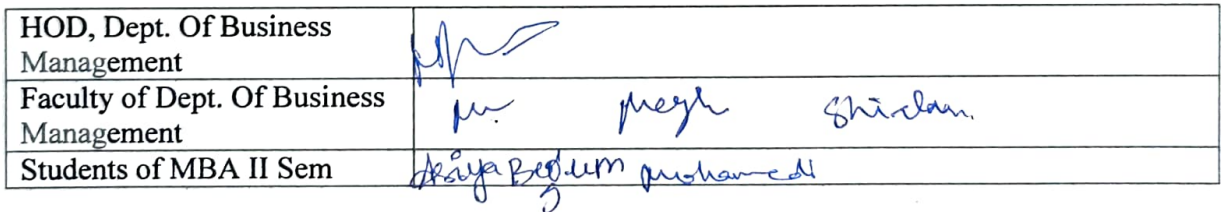 HOD, Dept. Of Business
Management
Faculty of Dept. Of Business
Management
Students of MBA II Sem Asiya Begum Mohamed